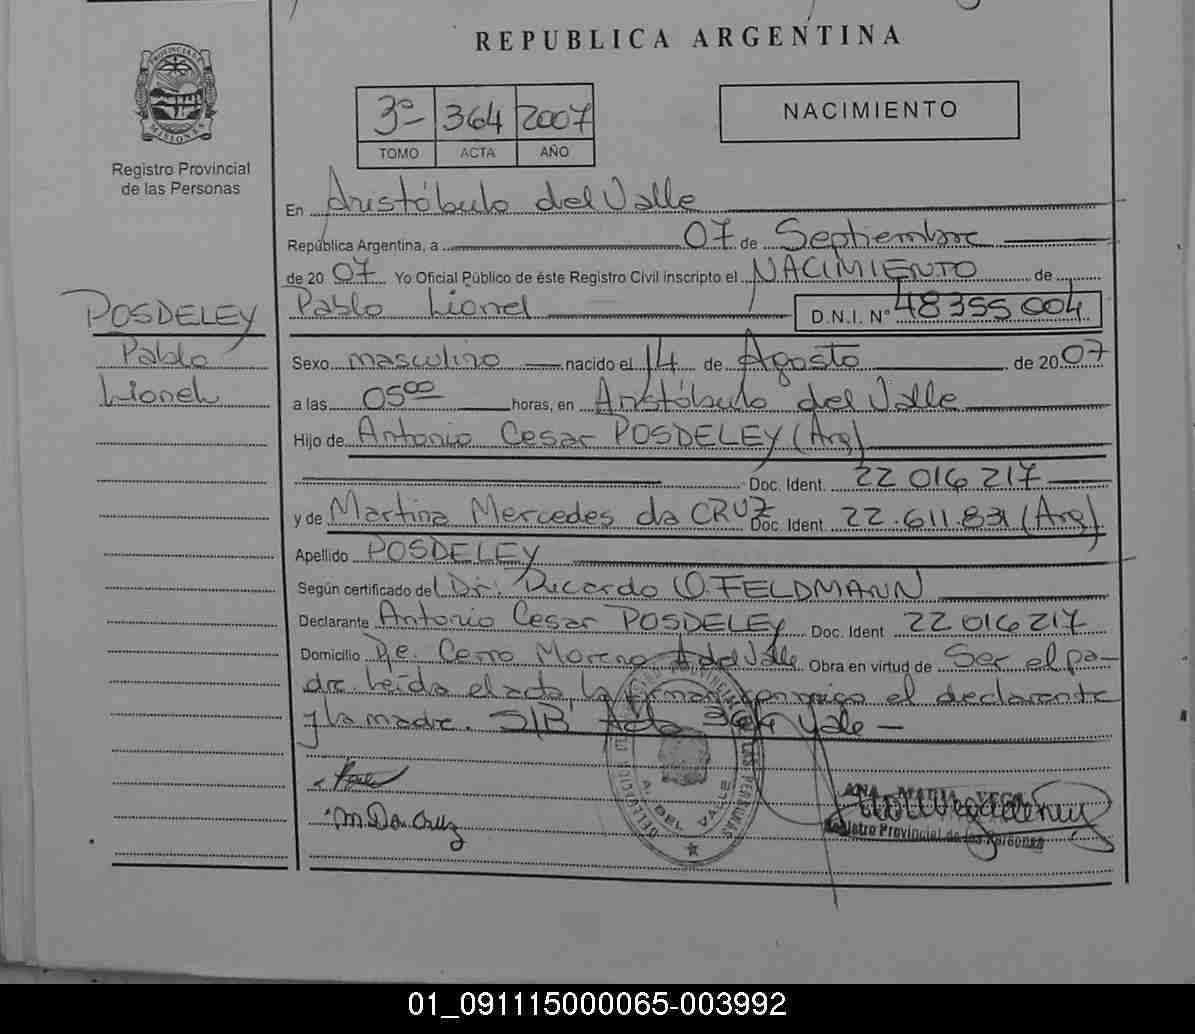 REPUBLICA ARGENTINA
PROVINCIA DE MISIONES
Registro Provincial
de las Personas
3º 364 2007
TOMO ACTA AÑO
NACIMIENTO
En Aristóbulo del Valle
República Argentina, a 07 de Septiembre
de 2007 Yo Oficial Público de éste Registro Civil inscripto el NACIMIENTO de
Pablo Lionel D.N.I. Nº 48355004
POSDELEY
Pablo
Lionel
Sexo masculino nacido el 14 de Agosto de 2007
a las 05⁰⁰ horas, en Aristóbulo del Valle
Hijo de Antonio Cesar POSDELEY (Arg)
Doc. Ident. 22 016 217
y de Martina Mercedes da CRUZ Doc. Ident. 22.611.831 (Arg)
Apellido POSDELEY
Según certificado del Dr. Ricardo O. FELDMANN
Declarante Antonio Cesar POSDELEY Doc. Ident 22 016 217
Domicilio Pje. Cerro Moreno A del Valle Obra en virtud de Ser el pa-
dre leída el acta, la firman conmigo el declarante
y la madre. S/B Acta 364 Vale -
M Da Cruz
DELEGACION REGISTRO PROVINCIAL DE LAS PERSONAS
A. DEL VALLE
ANA MARIA VEGA
Registro Provincial de las Personas
01_091115000065-003992